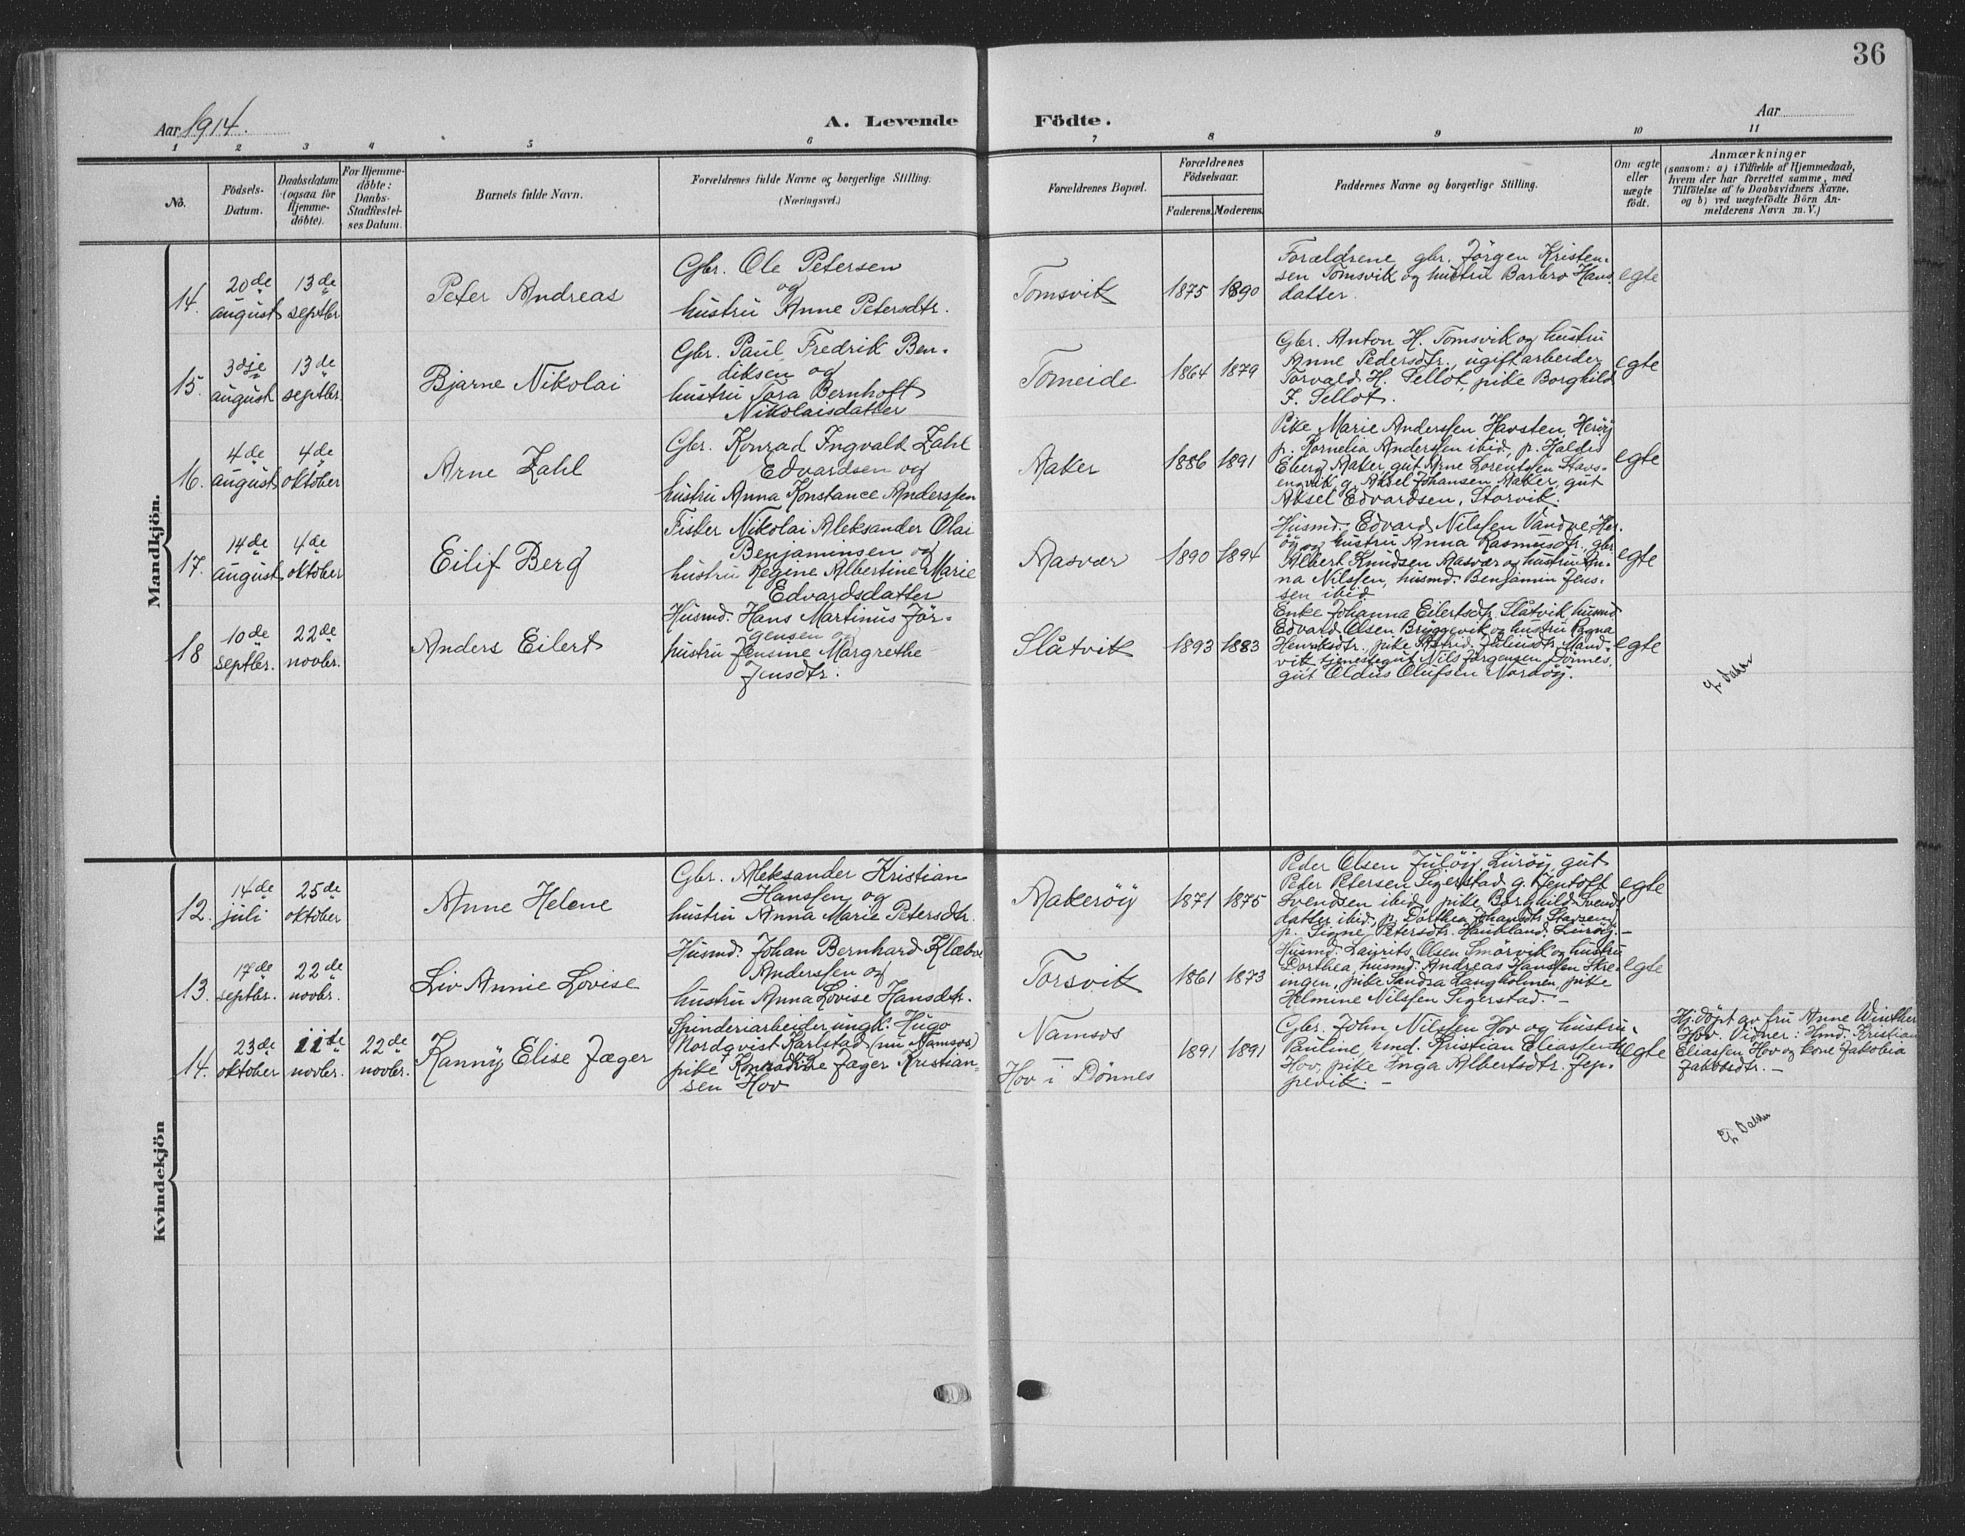 36
Aar 1914.
A. Levende Födte.
Aar
1 2 3 4 5 6 7 8 9 10 11
No.
Födsels-Datum.
Daabsdatum (ogsaa for Hjemmedöbte).
For Hjemmedöbte: Daabs-Stadfæstelses Datum.
Barnets fulde Navn.
Forældrenes fulde Navne og borgerlige Stilling. (Næringsvei.)
Forældrenes Bopæl.
Forældrenes Födselsaar.
Faderens. Moderens.
Faddernes Navne og borgerlige Stilling.
Om ægte eller uægte födt.
Anmærkninger
(saasom: a) i Tilfælde af Hjemmedaab,
hvem der har forrettet samme, med
Tilföielse af to Daabsvidners Navne,
og b) ved uægtefödte Börn An-
melderens Navn m. V.)
Mandkjön.
14. 20de august 13de septbr.
Peter Andreas
Gbr. Ole Petersen
og
hustru Anne Petersdtr.
Tomsvik 1875 1890
Forældrene gbr. Jörgen Kristen-
sen Tomsvik og hustru Barbro Hans-
datter.
egte
15. 3dje august 13de septbr.
Bjarne Nikolai
Gbr. Paul Fredrik Ben-
diksen og
hustru Tora Bernhoft
Nikolaisdatter
Tomeide 1864 1879
Gbr. Anton H. Tomsvik og hustru
Anne Pedersdtr., ugift arbeider
Torvald H. Selløt, pike Borghild
F. Selløt.
egte
16. 4de august 4de oktober
Arne Zahl
Gbr. Konrad Ingvald Zahl
Edvardsen og
hustru Anna Konstance Anderssen
Aaker 1886 1891
Pike Marie Anderssen Havsten, Herøy
p. Kornelia Anderssen ibid, p. Haldis
Eberg Aaker, gut Arne Lorentssen Stavs-
engvik, g. Aksel Johansen Aaker, gut
Aksel Edvardsen, Storvik.
egte
17. 14de august 4de oktober
Eilif Berg
Fisker Nikolai Aleksander Olai
Benjaminsen og
hustru Regine Albertine Marie
Edvardsdatter
Aasvær 1890 1894
Husmd. Edvard Nilssen Vandve, Her-
øy og hustru Anna Rasmusdtr. gbr.
Albert Knudsen Aasvær og hustru An-
na Nilssen, husmd. Benjamin Jens-
sen ibid
egte
18 10de septbr. 22de novbr.
Anders Eilert
Husmd. Hans Martinus Jör-
gensen og
hustru Jensine Margrethe
Jensdtr.
Slåtvik 1893 1883
Enke Johanna Eilertsdtr. Slåtvik, husmd
Edvard Olsen Bryggevik og hustru Ragna
Henriksdtr., pike Astrid Juliusdtr. Sand-
vik, tjenestegut Nils Jørgensen Dønnes,
gut Oldus Olufsen Nordøy.
egte
Kvindekjön
12. 14de juli 25de oktober
Anne Helene
Gbr. Aleksander Kristian
Hanssen og
hustru Anna Marie Petersdtr.
Aakerøy 1871 1875
Peder Olsen Juløy, Lurøy, gut
Peter Petersen Sigerstad, g. Hentoft
Svendsen ibid, pike Borghild Svends-
datter ibid, p. Dorthea Johansdtr. Stavsen,
p. Signe Petersdtr. Haukland, Lurøy. –
egte
13. 17de septbr. 22de novbr.
Liv Annie Lovise
Husmd. Johan Bernhard Klæboe
Anderssen og
hustru Anna Lovise Hansdtr.
Torsvik 1861 1873
Husmd. Laurits Olsen Smørvik og hustru
Dorthea, husmd. Andreas Hanssen Skre-
ingen, pike Sandra Langholmen, pike
Helmine Nilssen Sigerstad. –
egte
14. 23de oktober 11te novbr. 22de novbr.
Kanny Elise Jæger
Spinderiarbeider ungk. Hugo
Nordqvist Karlstad (nu Namsos)
og
pike Konradine Jæger Kristian-
sen Hov
Namsos
Hov i Dønnes
1891 1891
Gbr. John Nilssen Hov og hustru
Pauline, hmd. Kristian Eliassen
Hov, pike Inga Albertsdtr. Jep-
pevik. –
uegte
Hj. døpt av fru Anne Winther
Hov. Vidner: Hmd. Kristian
Eliassen Hov og kone Jakobia
Jakobsdtr. –